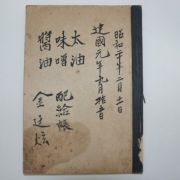 昭和二十年二月十一日
建國元年九月拾壹日
太油
味噌
醬油
配給帳
金廷炫